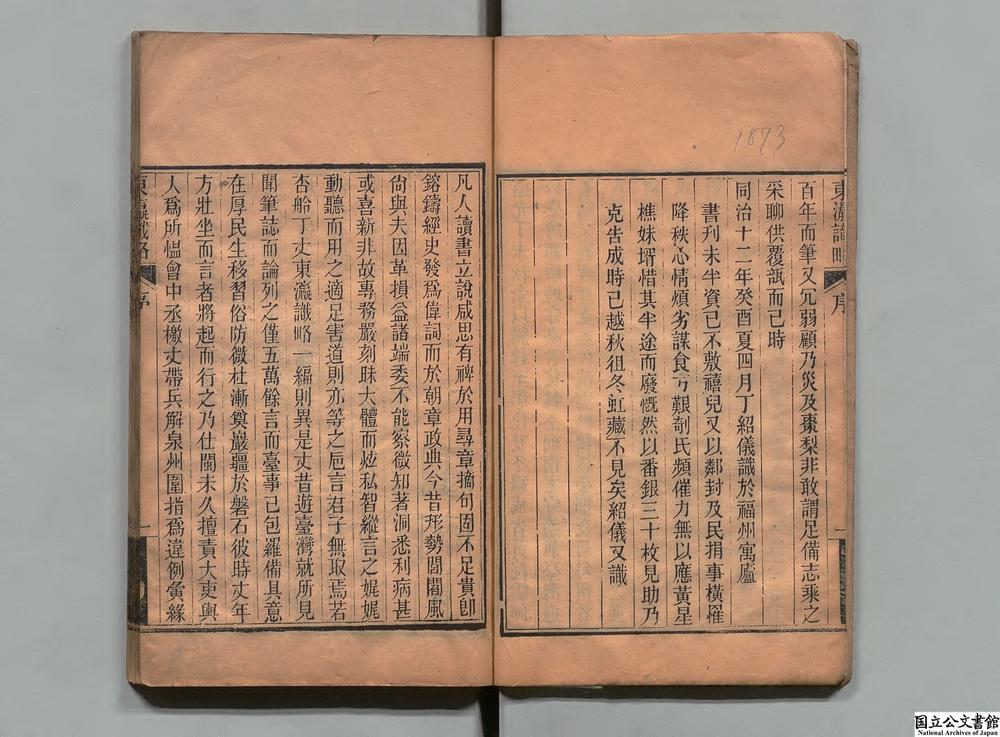 1873
東瀛識略
序
一
百年而筆又冗弱顧乃災及棗梨非敢謂足備志乘之
采聊供覆瓿而已時
同治十二年癸酉夏四月丁紹儀識於福州寓廬
書刊未半資已不敷禧兒又以鄰封及民捐事橫罹
降秩心情煩劣謀食亏艱剞氏頻催力無以應黃星
樵妹壻惜其半途而廢慨然以番銀三十枚見助乃
克告成時已越秋徂冬虹藏不見矣紹儀又識
凡人讀書立說咸思有裨於用尋章摘句固不足貴卽
鎔鑄經史發爲偉詞而於朝章政典今昔形勢閭閻風
尙與夫因革損益諸端委不能察微知著洞悉利病甚
或喜新非故專務嚴刻昧大體而炫私智縱言之娓娓
動聽而用之適足害道則亦等之卮言君子無取焉若
杏舲丁丈東瀛識略一編則異是丈昔遊臺灣就所見
聞筆誌而論列之僅五萬餘言而臺事已包羅備具意
在厚民生移習俗防微杜漸奠巖疆於磐石彼時丈年
方壯坐而言者將起而行之乃仕閩未久擅責大吏輿
人爲所慍曾中丞檄丈帶兵解泉州圍指爲違例夤緣
東瀛識略
序
一
国立公文書館
National Archives of Japan